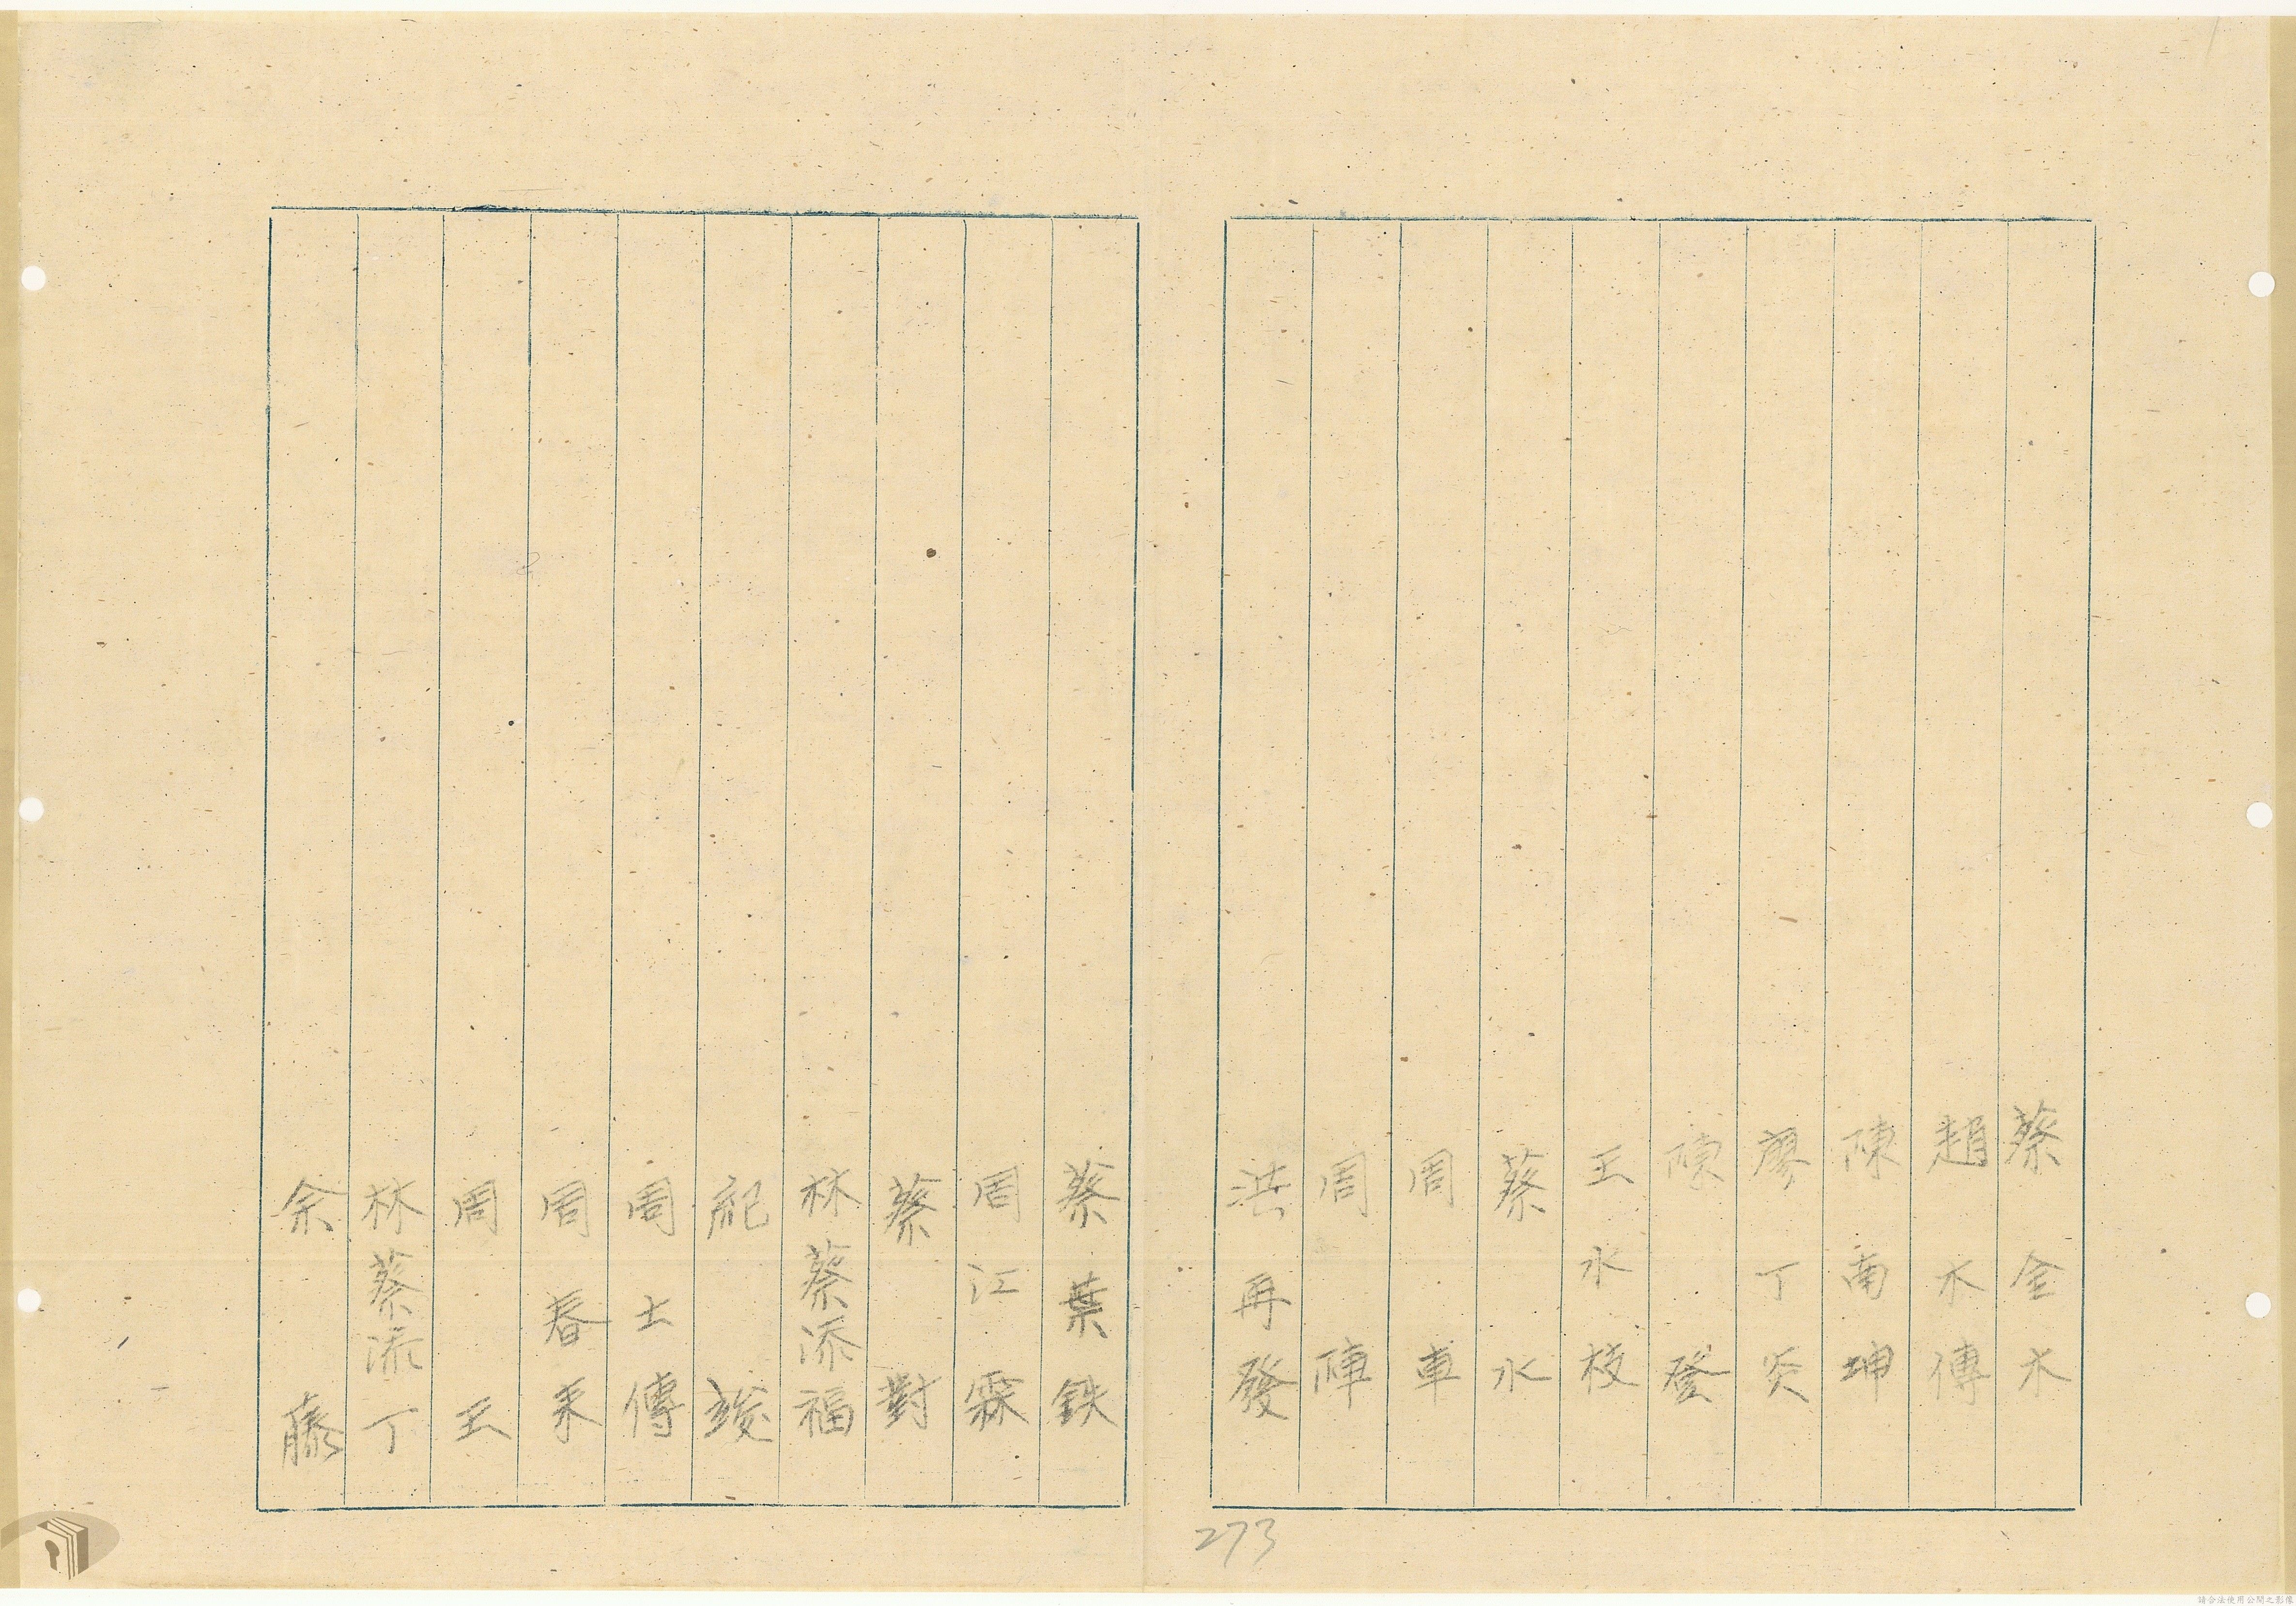 蔡金木
趙木傳
陳南坤
廖丁炎
陳登
王水枝
蔡水
周車
周陣
洪再發
蔡葉鉄
周江霖
蔡對
林蔡添福
紀竣
周士傳
周春来
周王
林蔡添丁
余藤
273
請合法使用公開之影像